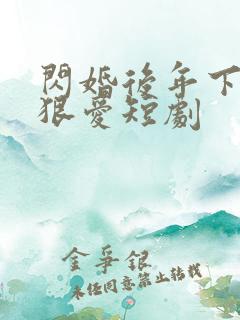 閃婚後年下
狠愛短劇
金爭銀
未經同意禁止轉載